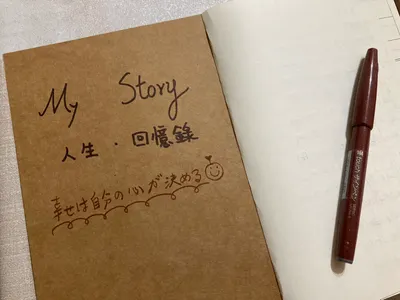 My Story
人生・回憶錄
幸せは自分の心が決める